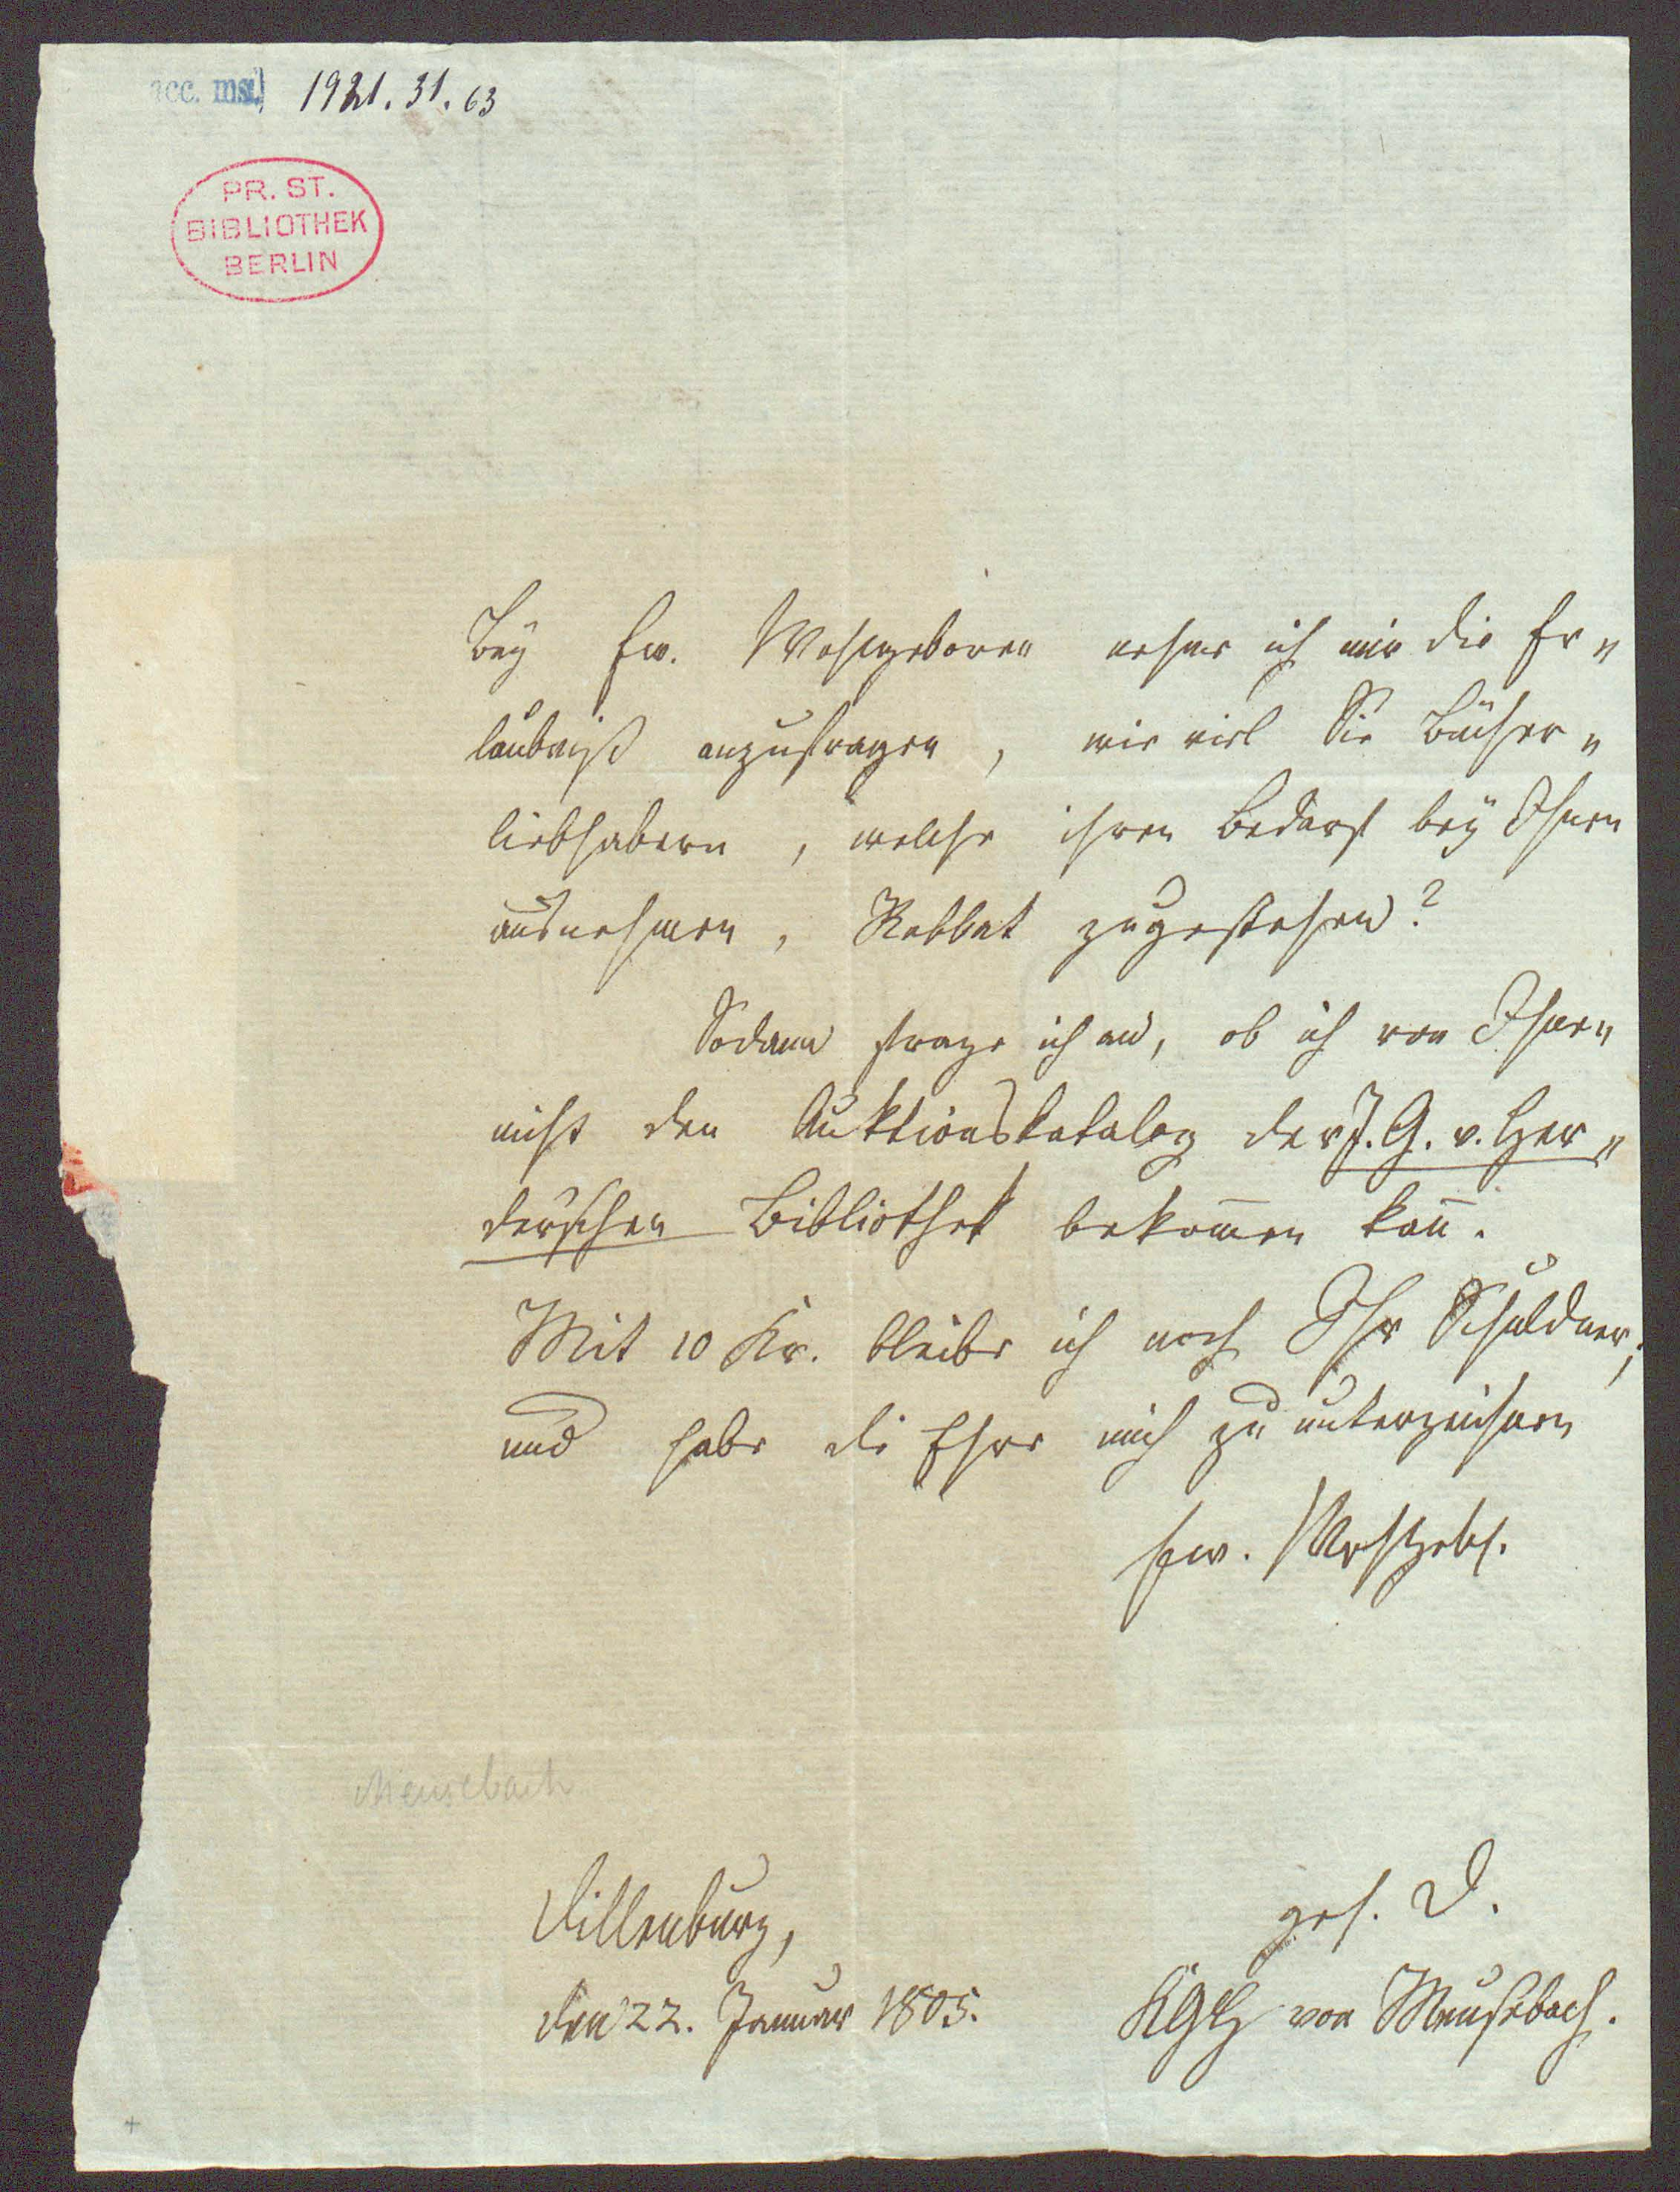 acc. ms. 1921.31.63
PR. ST.
BIBLIOTHEK
BERLIN
Bey Ew. Wohlgeboren nehme ich mir die Er„
laubniß anzufragen, wie viel Sie Bücher„
liebhabern, welche ihren Bedarf bey Ihnen
ausnehmen, Rabbat zugestehen?
Sodann frage ich an, ob ich von Ihnen
nicht den Auktionskatalog der J. G. v. Her„
derschen Bibliothek bekom̅en kan̅.
Mit 10 Kr. bleibe ich noch Ihr Schuldner;
und habe die Ehre mich zu unterzeichnen
Ew. Wohlgeb.
Meusebach
Dillenburg,
den 22. Januar 1805.
geh. D.
von Meusebach.